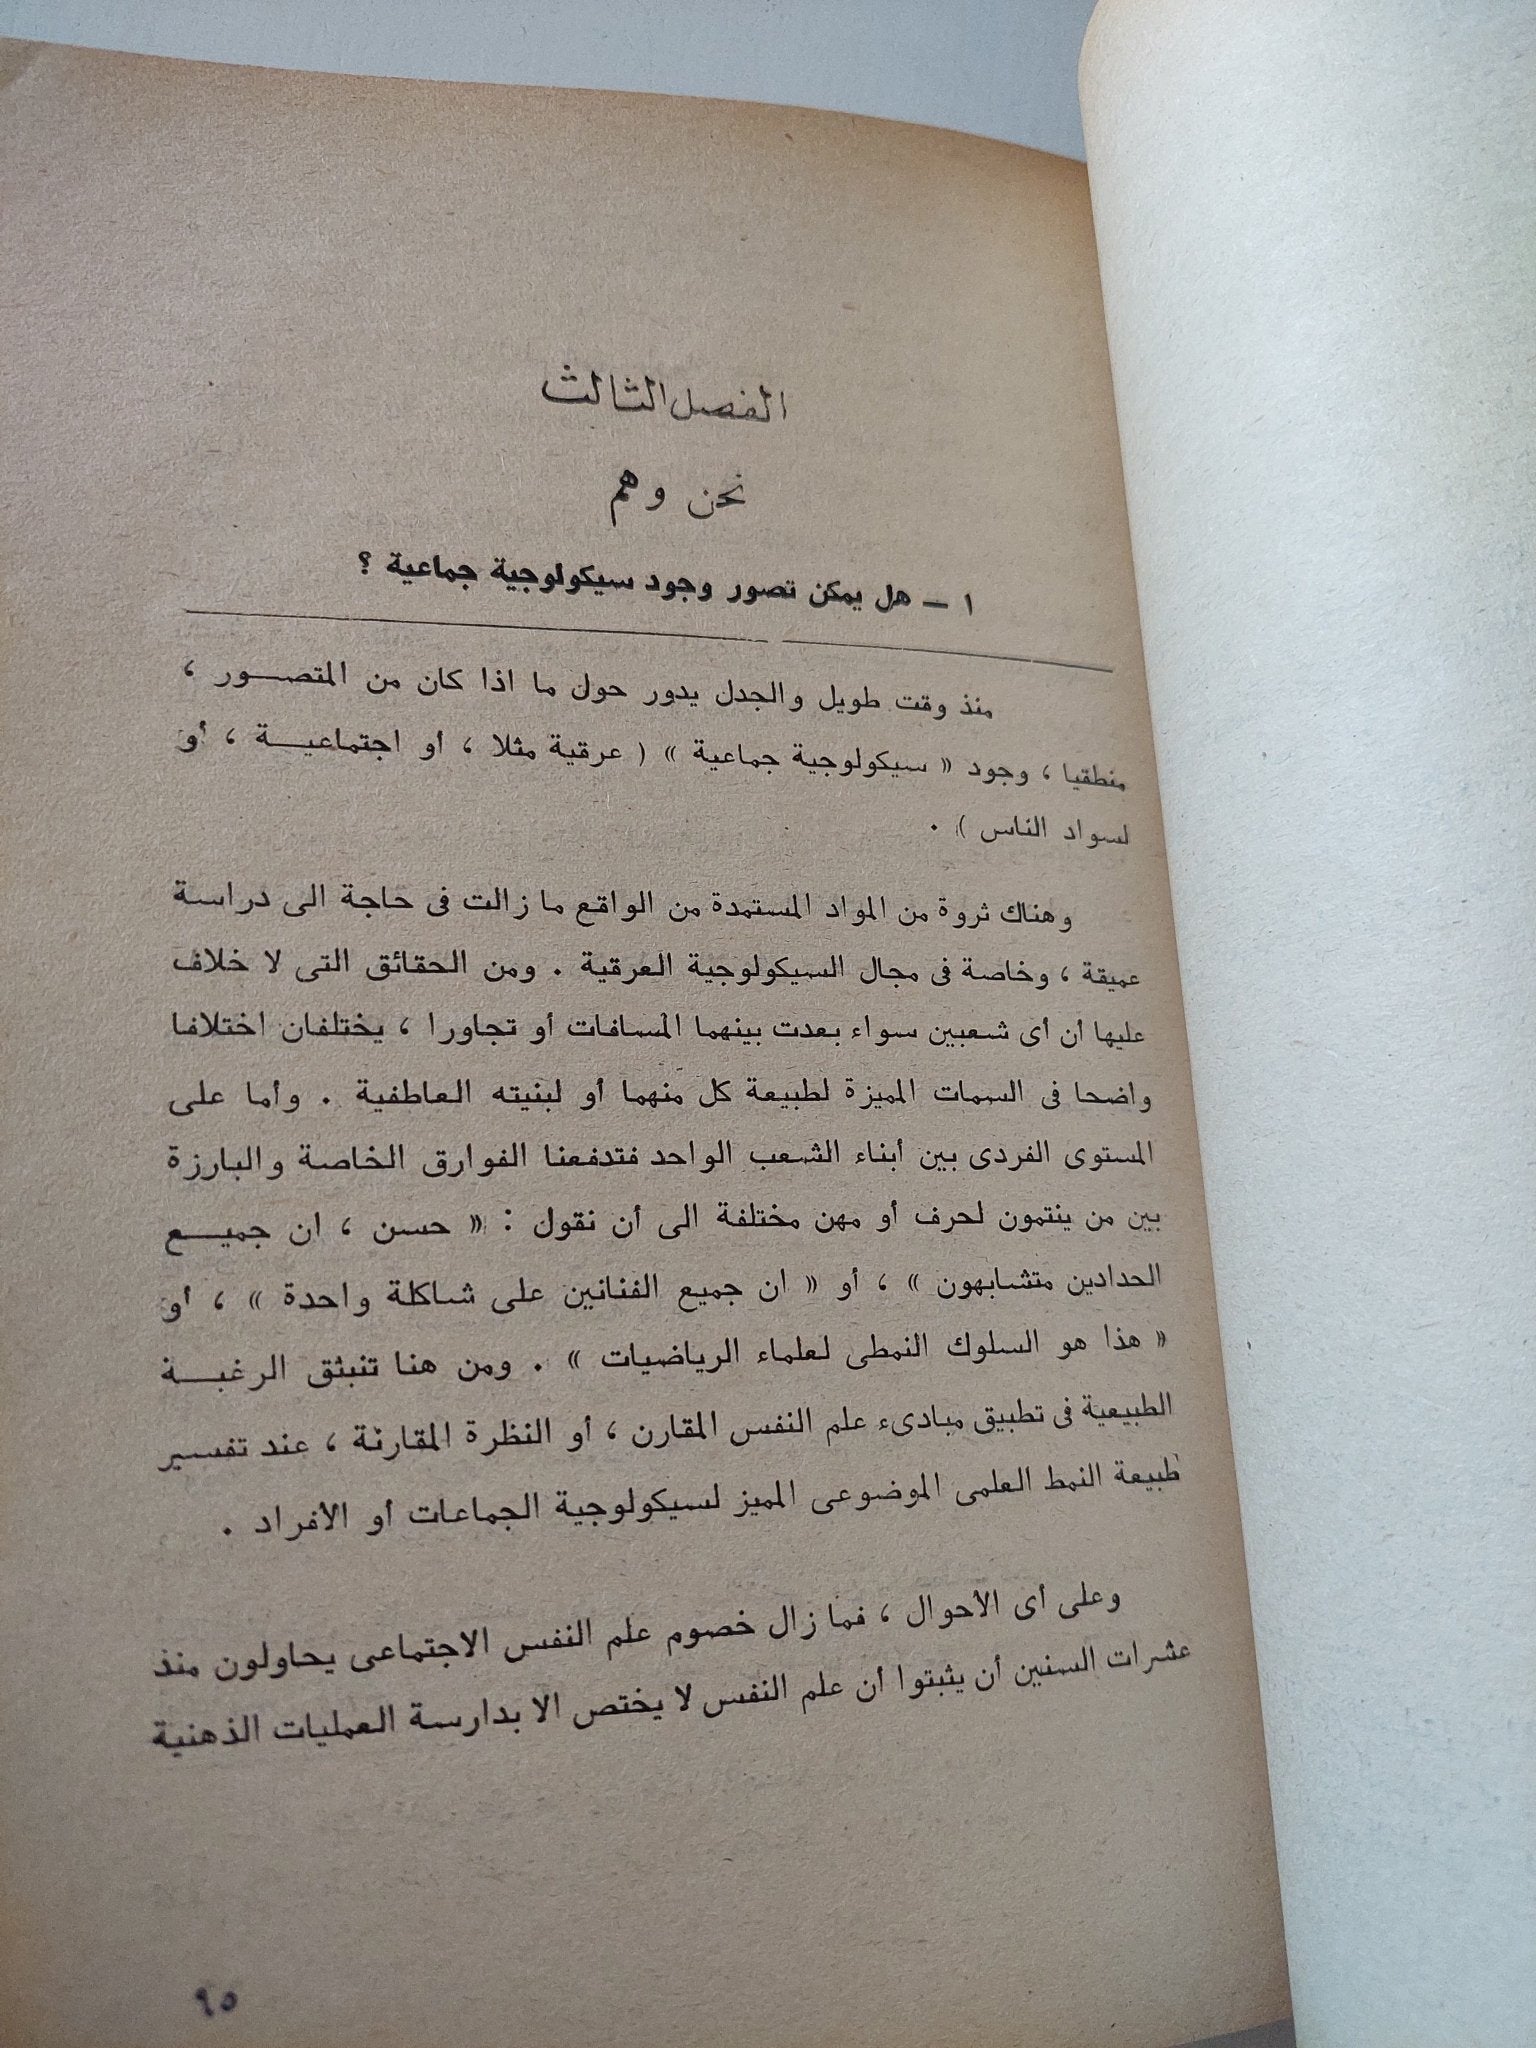 الفصل الثالث
نحن وهم
١ – هل يمكن تصور وجود سيكولوجية جماعية ؟
منذ وقت طويل والجدل يدور حول ما اذا كان من المتصـــور ،
منطقيا ، وجود « سيكولوجية جماعية » ( عرقية مثلا ، أو اجتماعيـــة ، أو
لسواد الناس ) .
وهناك ثروة من المواد المستمدة من الواقع ما زالت فى حاجة الى دراسة
عميقة ، وخاصة فى مجال السيكولوجية العرقية . ومن الحقائق التى لا خلاف
عليها أن أى شعبين سواء بعدت بينهما المسافات أو تجاورا ، يختلفان اختلافا
واضحا فى السمات المميزة لطبيعة كل منهما أو لبنيته العاطفية . وأما على
المستوى الفردى بين أبناء الشعب الواحد فتدفعنا الفوارق الخاصة والبارزة
بين من ينتمون لحرف أو مهن مختلفة الى أن نقول : « حسن ، ان جميـــع
الحدادين متشابهون » ، أو « ان جميع الفنانين على شاكلة واحدة » ، أو
« هذا هو السلوك النمطى لعلماء الرياضيات » . ومن هنا تنبثق الرغبـــة
الطبيعية فى تطبيق مبادىء علم النفس المقارن ، أو النظرة المقارنة ، عند تفسير
طبيعة النمط العلمى الموضوعى المميز لسيكولوجية الجماعات أو الأفراد .
وعلى أى الأحوال ، فما زال خصوم علم النفس الاجتماعى يحاولون منذ
عشرات السنين أن يثبتوا أن علم النفس لا يختص الا بدارسة العمليات الذهنية
٩٥